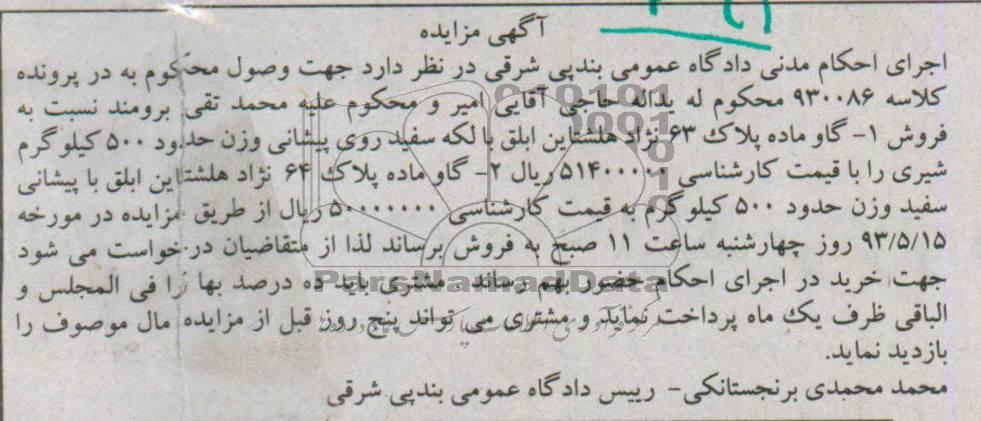 آگهی مزایده
اجرای احکام مدنی دادگاه عمومی بندپی شرقی در نظر دارد جهت وصول محکوم به در پرونده
کلاسه ۹۳۰۰۸۶ محکوم له یداله حاجی آقایی امیر و محکوم علیه محمد تقی برومند نسبت به
فروش ۱- گاو ماده پلاک ۶۳ نژاد هلشتاین ابلق با لکه سفید روی پیشانی وزن حدود ۵۰۰ کیلو گرم
شیری را با قیمت کارشناسی ۵۱۴۰۰۰۰۰ ریال ۲- گاو ماده پلاک ۶۴ نژاد هلشتاین ابلق با پیشانی
سفید وزن حدود ۵۰۰ کیلو گرم به قیمت کارشناسی ۵۰۰۰۰۰۰۰ ریال از طریق مزایده در مورخه
۹۳/۵/۱۵ روز چهارشنبه ساعت ۱۱ صبح به فروش برساند لذا از متقاضیان درخواست می شود
جهت خرید در اجرای احکام حضور بهم رساند . مشتری باید ده درصد بها را فی المجلس و
الباقی ظرف یک ماه پرداخت نماید و مشتری می تواند پنج روز قبل از مزایده مال موصوف را
بازدید نماید.
محمد محمدی برنجستانکی- رییس دادگاه عمومی بندپی شرقی
ParsNamadData